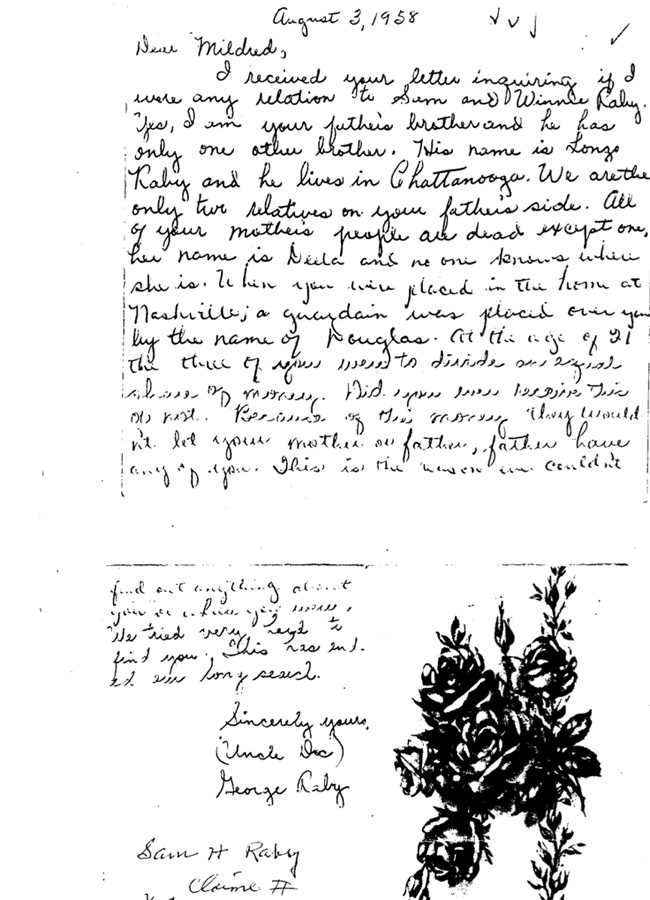 August 3, 1958
Dear Mildred,
I received your letter inquiring if I
were any relation to Sam and Winnie Raby.
Yes, I am your father's brother and he has
only one other brother. His name is Lonzo
Raby and he lives in Chattanooga. We are the
only two relatives on your father's side. All
of your mother's people are dead except one,
her name is Deela and no one knows where
she is. When you were placed in the home at
Nashville; a guardain was placed over you
by the name of Douglas. At the age of 21
the three of you were to divide an equal
share of money. Did you ever receive this
or not. Because of this money they would
n't let your mother or father, father have
any of you. This is the reason we couldn't
find out anything about
you or where you were.
We tried very hard to
find you. This has end-
ed our long search.
Sincerely yours,
(Uncle Doc)
George Raby
Sam H Raby
Claime #